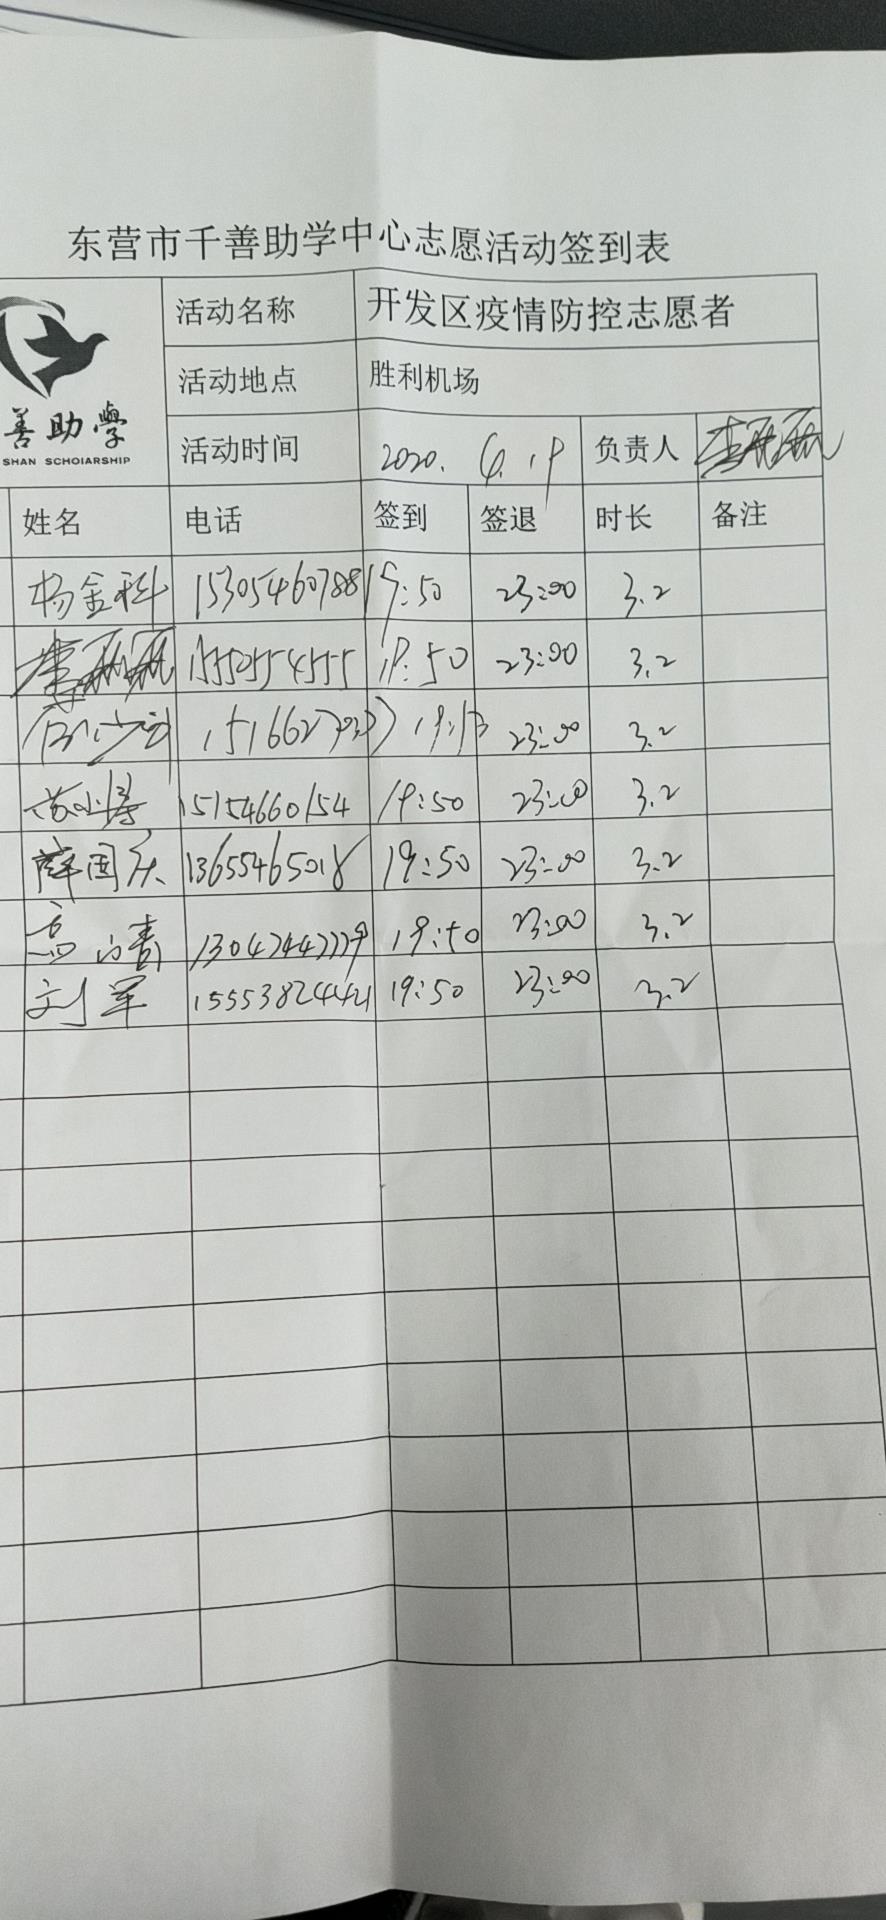 东营市千善助学中心志愿活动签到表
活动名称 开发区疫情防控志愿者
活动地点 胜利机场
善助學
SHAN SCHOIARSHIP
活动时间 2020. 负责人
姓名 电话 签到 签退 时长 备注
杨金科 15305460788 19:50 23:00 3.2
19:50 23:00 3.2
23:00 3.2
15154660154 19:50 23:00 3.2
薛国庆 13655465018 19:50 23:00 3.2
19:50 23:00 3.2
刘军 15553824421 19:50 23:00 3.2